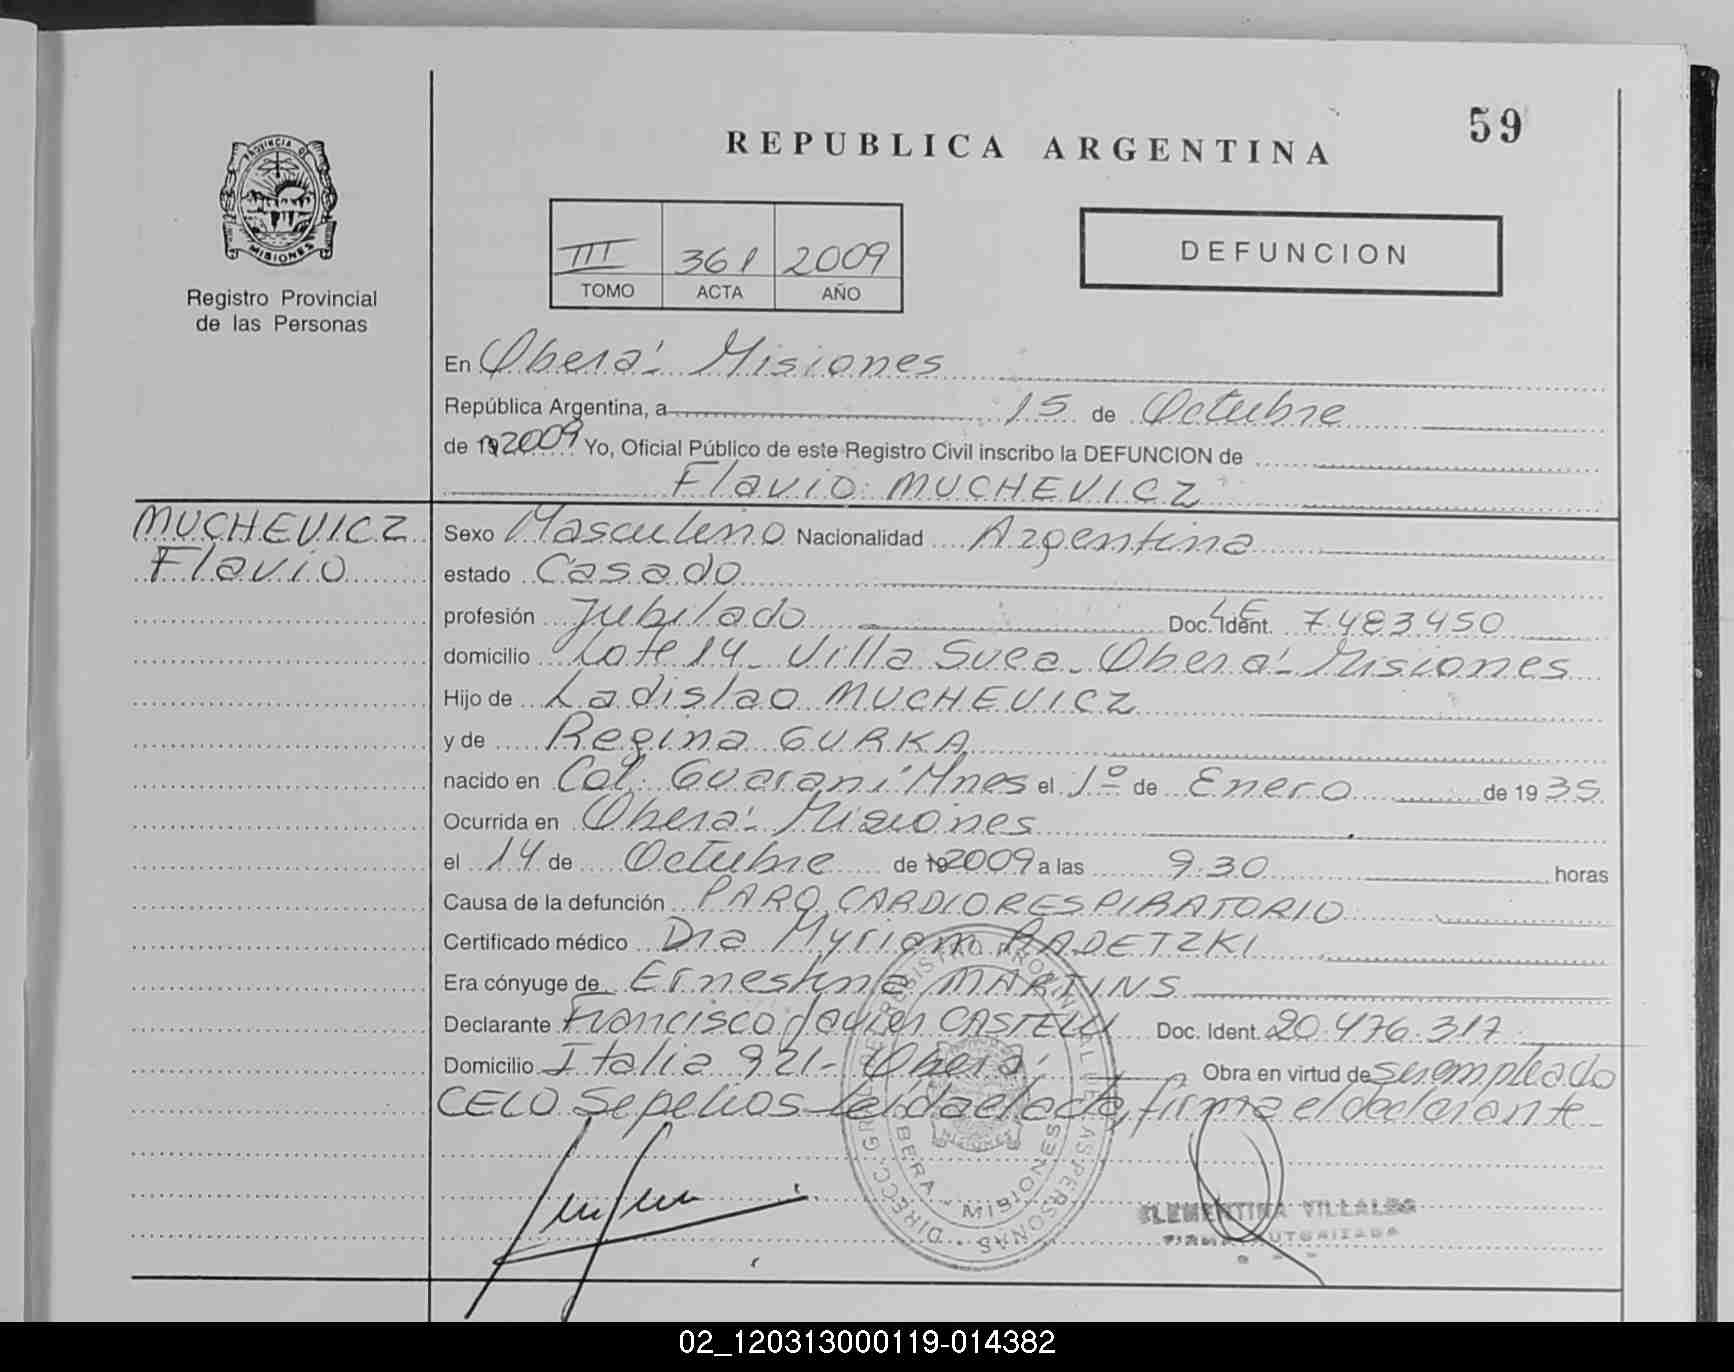 59
REPUBLICA ARGENTINA
PROVINCIA DE
MISIONES
Registro Provincial
de las Personas
III 361 2009
TOMO ACTA AÑO
DEFUNCION
En Oberá - Misiones
República Argentina, a 15 de Octubre
de 19 2009 Yo, Oficial Público de este Registro Civil inscribo la DEFUNCION de
Flavio MUCHEVICZ
MUCHEVICZ
Flavio
Sexo Masculino Nacionalidad Argentina
estado Casado
profesión Jubilado Doc. Ident. LE 7.483.450
domicilio Lote 14 - Villa Svea - Oberá - Misiones
Hijo de Ladislao MUCHEVICZ
y de Regina GURKA
nacido en Col. Guaraní Mnes el 1º de Enero de 1935
Ocurrida en Oberá - Misiones
el 14 de Octubre de 19 2009 a las 9.30 horas
Causa de la defunción PARO CARDIORESPIRATORIO
Certificado médico Dra Myriam RADETZKI
Era cónyuge de Ernestina MARTINS
Declarante Francisco Javier CASTELLI Doc. Ident. 20.476.317
Domicilio Italia 921 - Oberá Obra en virtud de ser empleado
CELO Sepelios - Leida el acta, firma el declarante
DIRECC. GRAL. DEL REGISTRO PROVINCIAL DE LAS PERSONAS
OBERA - MISIONES
MISIONES
CLEMENTINA VILLALBA
FIRMA AUTORIZADA
02_120313000119-014382